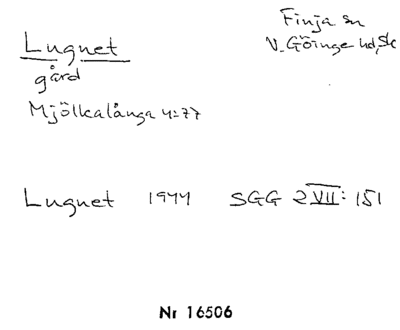 Finja sn
V. Göinge hd, Sk
Lugnet
gård
Mjölkalånga 4:77
Lugnet 1944 SGG 2 VII: 151
Nr 16506